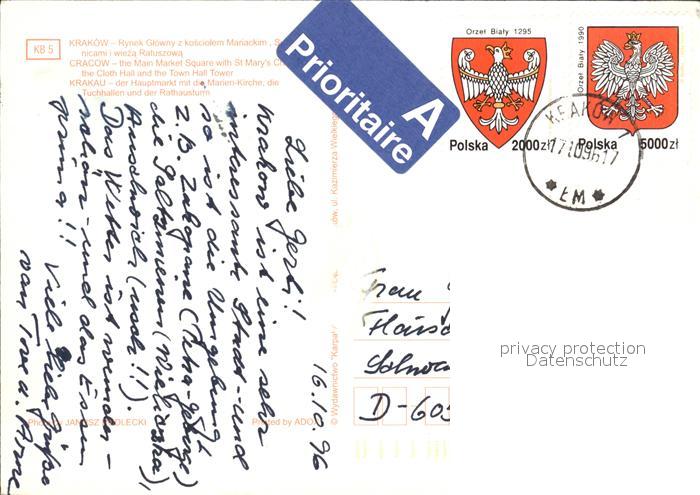 KB 5
KRAKÓW – Rynek Główny z kościołem Mariackim, S
nicami i wieżą Ratuszową
CRACOW – the Main Market Square with St Mary's Ch
the Cloth Hall and the Town Hall Tower
KRAKAU – der Hauptmarkt mit die Marien-Kirche, die
Tuchhallen und der Rathausturm
A
Prioritaire
Orzeł Biały 1295
Polska 2000zł
Orzeł Biały 1990
Polska 5000zł
KRAKÓW
ŁM
16.10.96
Liebe
Krakow ist eine sehr
interessante Stadt – und
so ist die Umgebung
z.B. Zakopane (Tatra-Gebirge)
die Saltzminen (Wieliczka),
Auschwitz (usch!!).
Das Wetter ist wunder-
schön – und das Essen
prima!!
Viele liebe Grüße
von Tove u. Arne
Frau
D-605
Printed by ADO
© Wydawnictwo "Karpat
ów, ul. Kazimierza Wielkiego
privacy protection
Datenschutz